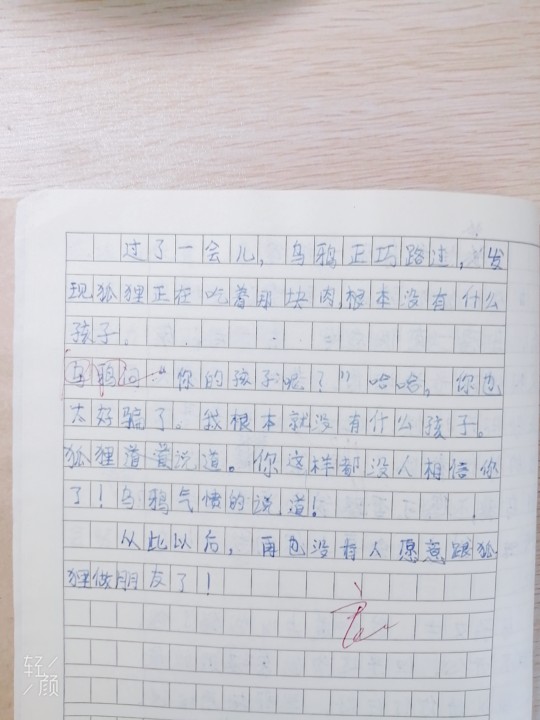 过了一会儿，乌鸦正巧路过，发
现狐狸正在吃着那块肉，根本没有什么
孩子。
乌鸦问：“你的孩子呢？”哈哈，你也
太好骗了。我根本就没有什么孩子。
狐狸道说道。你这样都没人相信你
了！乌鸦气愤的说道！
从此以后，再也没有人愿意跟狐
狸做朋友了！
轻
颜